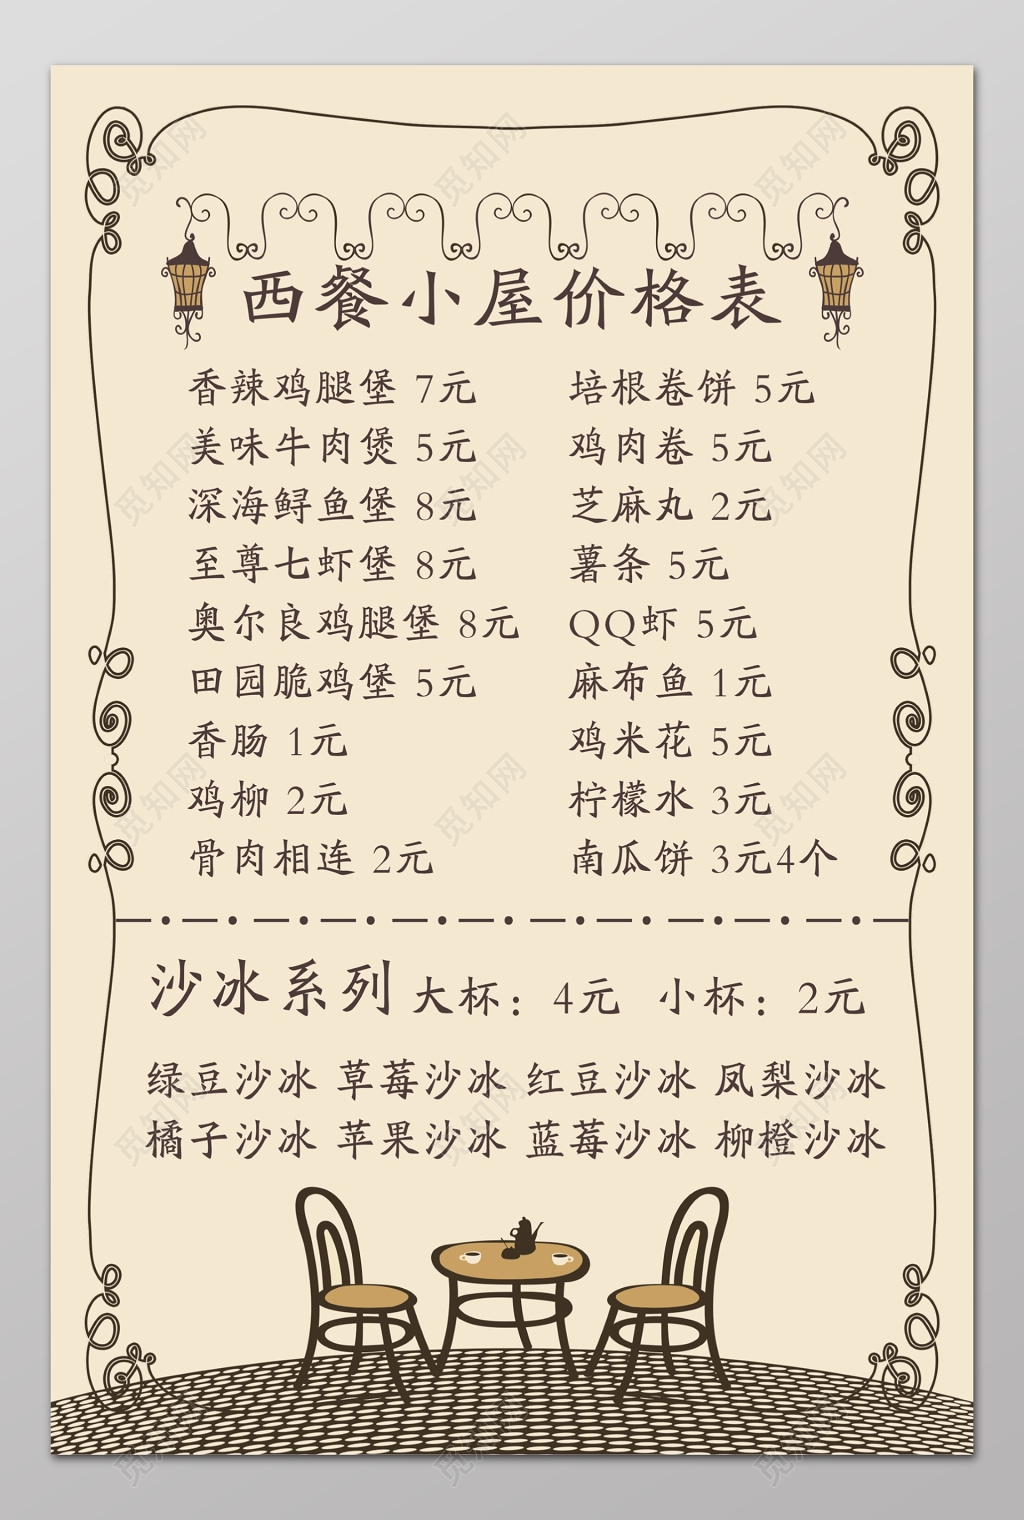 西餐小屋价格表
香辣鸡腿堡 7元
美味牛肉煲 5元
深海鲟鱼堡 8元
至尊七虾堡 8元
奥尔良鸡腿堡 8元
田园脆鸡堡 5元
香肠 1元
鸡柳 2元
骨肉相连 2元
培根卷饼 5元
鸡肉卷 5元
芝麻丸 2元
薯条 5元
QQ虾 5元
麻布鱼 1元
鸡米花 5元
柠檬水 3元
南瓜饼 3元4个
沙冰系列 大杯：4元 小杯：2元
绿豆沙冰 草莓沙冰 红豆沙冰 凤梨沙冰
橘子沙冰 苹果沙冰 蓝莓沙冰 柳橙沙冰
觅知网